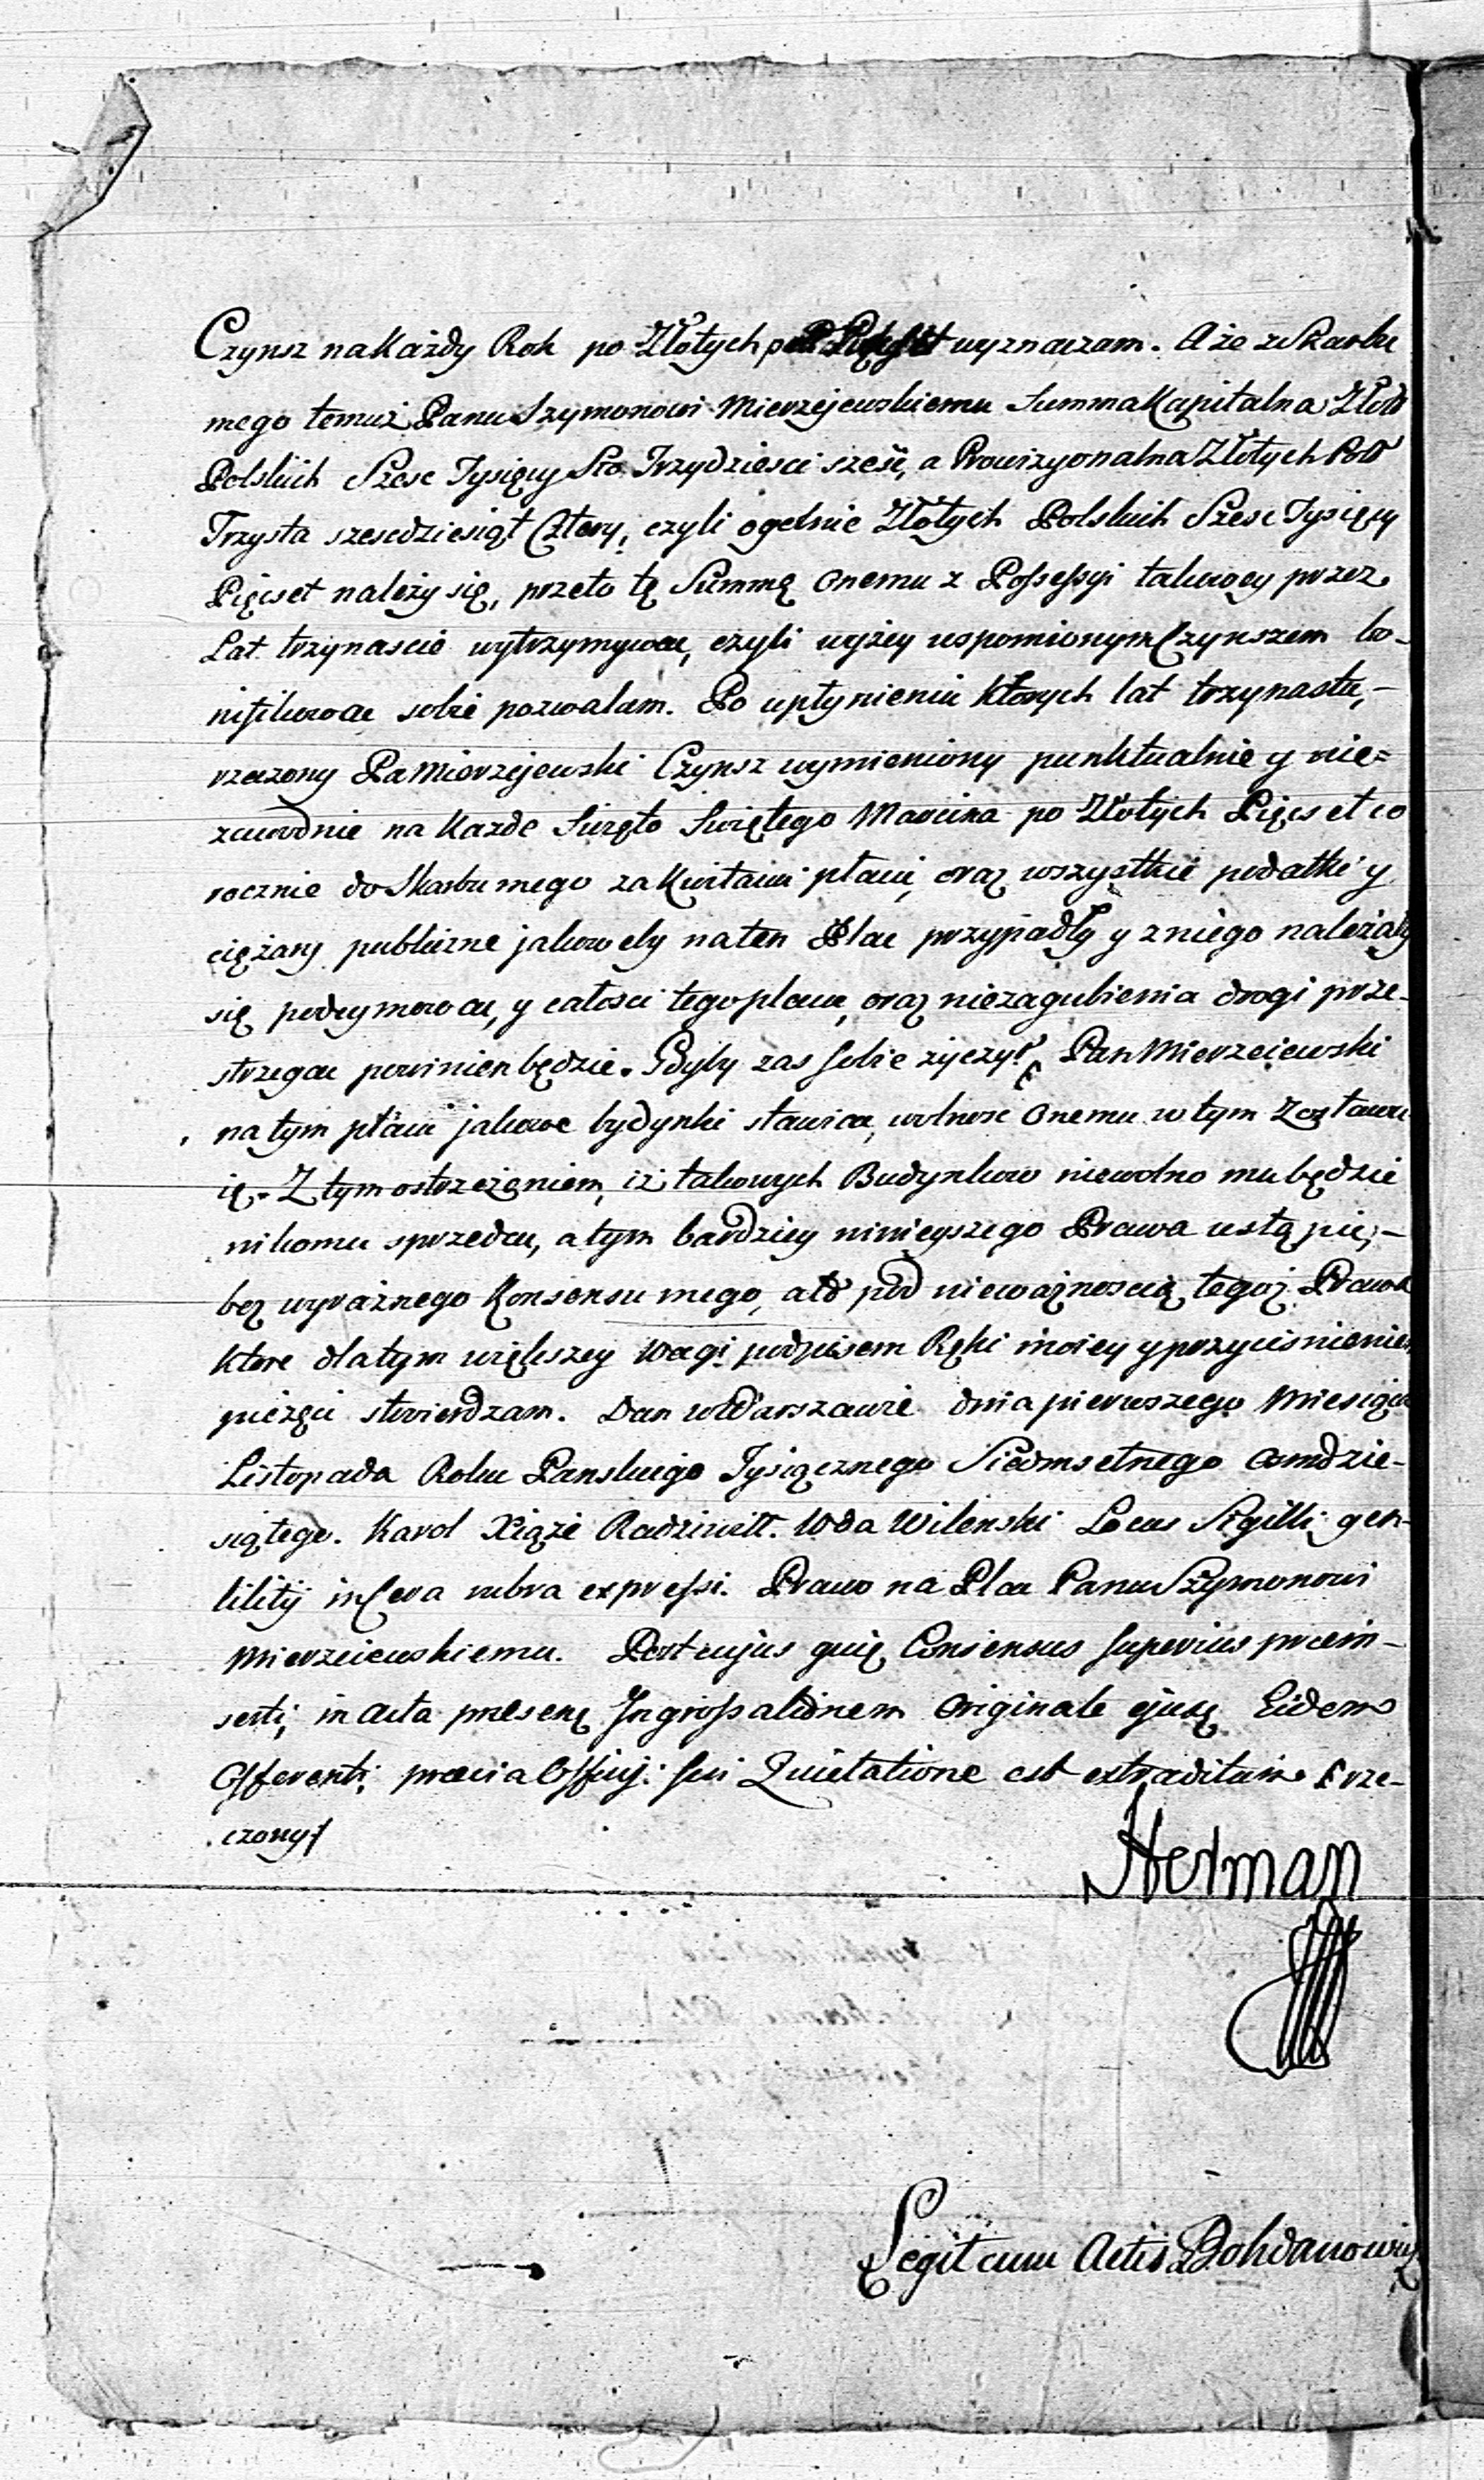 Czynsz na Każdy Rok po Złotych Pięcset wyznaczam. A że z Skarbu
mego temuż Panu Szymonowi Mierzejewskiemu Summa Kapitalna Złott
Polskich Szesc Tysięcy Sto Trzydziesci szesć, a Prowizyonalna Złotych Poll
Trzysta szescdziesiąt Cztery, czyli ogolnie Złotych Polskich Szesc Tysięcy
Pięcset należy się, przeto tę Summę onemu z Possessyi takowey przez
Lat trzynascie wytrzymywac, czyli wyżey wspomionym Czynszem bo-
nifikowac sobie pozwalam. Po upłynieniu ktorych lat trzynastu,-
rzeczony Pa Mierzejewski Czynsz wymieniony punktualnie y nie=
zawodnie na Kazde Swięto Swiętego Marcina po Złotych Pięcset co
rocznie do Skarbu mego za Kwitami płacić, oraz wszystkie podatki y
ciężary publiczne jakowe by na ten Plac przypadły y z niego należały
się podeymowac, y całosci tego placu, oraz niezagubienia drogi prze-
strzegac powinien będzie. Gdyby zas sobie życzył Pan Mierzeiewski
na tym placu jakowe bydynki stawiac, wolnosc onemu w tym Zostawu
ię. Z tym ostrzeżeniem, iż takowych Budynkow niewolno mu będzie
nikomu sprzedac, a tym bardziey ninieyszego Prawa ustąpic,-
bez wyraznego Konsensu mego, a to pod nieważnoscią tegoż Prawa
Ktore dla tym większey wagi podpisem Ręki moiey y przycisnieniem
pieżęci stwierdzam. Dan w Warszawie dnia pierwszego Miesiąca
Listopada Roku Panskiego Tysiącznego Siedmsetnego osmdzie-
siątego. Karol Xiąże Radziwiłł. Wda Wilenski Locus Sigilli gen-
tilitij in Cera rubra expressi. Prawo na Plac Panu Szymonowi
Mierzeiewskiemu. Post cujus quię Consensus superius prein-
serti, in acta presenę Ingrossationem originale ejusę Eidem
Offerenti, previa Officij: sui Quietatione est extraditum. rze-
czony
Herman
Legit cum Actis Bohdanowicz